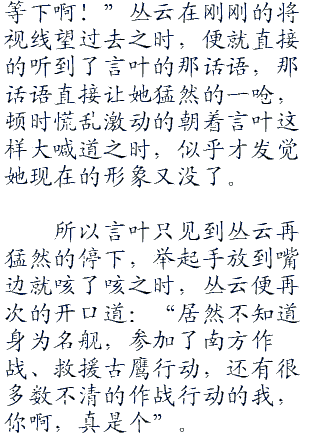 等下啊！”丛云在刚刚的将
视线望过去之时，便就直接
的听到了言叶的那话语，那
话语直接让她猛然的一呛，
顿时慌乱激动的朝着言叶这
样大喊道之时，似乎才发觉
她现在的形象又没了。
所以言叶只见到丛云再
猛然的停下，举起手放到嘴
边就咳了咳之时，丛云便再
次的开口道：“居然不知道
身为名舰，参加了南方作
战、救援古鹰行动，还有很
多数不清的作战行动的我，
你啊，真是个”。